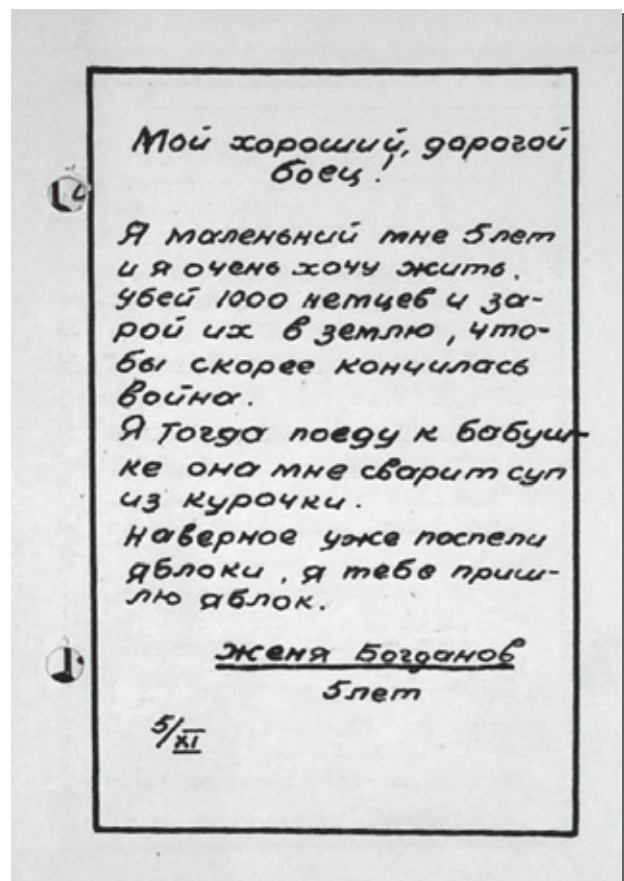 Мой хороший, дорогой
боец!
Я маленьний мне 5 лет
и я очень хочу жить.
Убей 1000 немцев и за-
рой их в землю, что-
бы скорее кончилась
война.
Я тогда поеду к бабуш-
ке она мне сварит суп
из курочки.
Наверное уже поспели
яблоки, я тебе приш-
лю яблок.
Женя Богданов
5 лет
5/XI